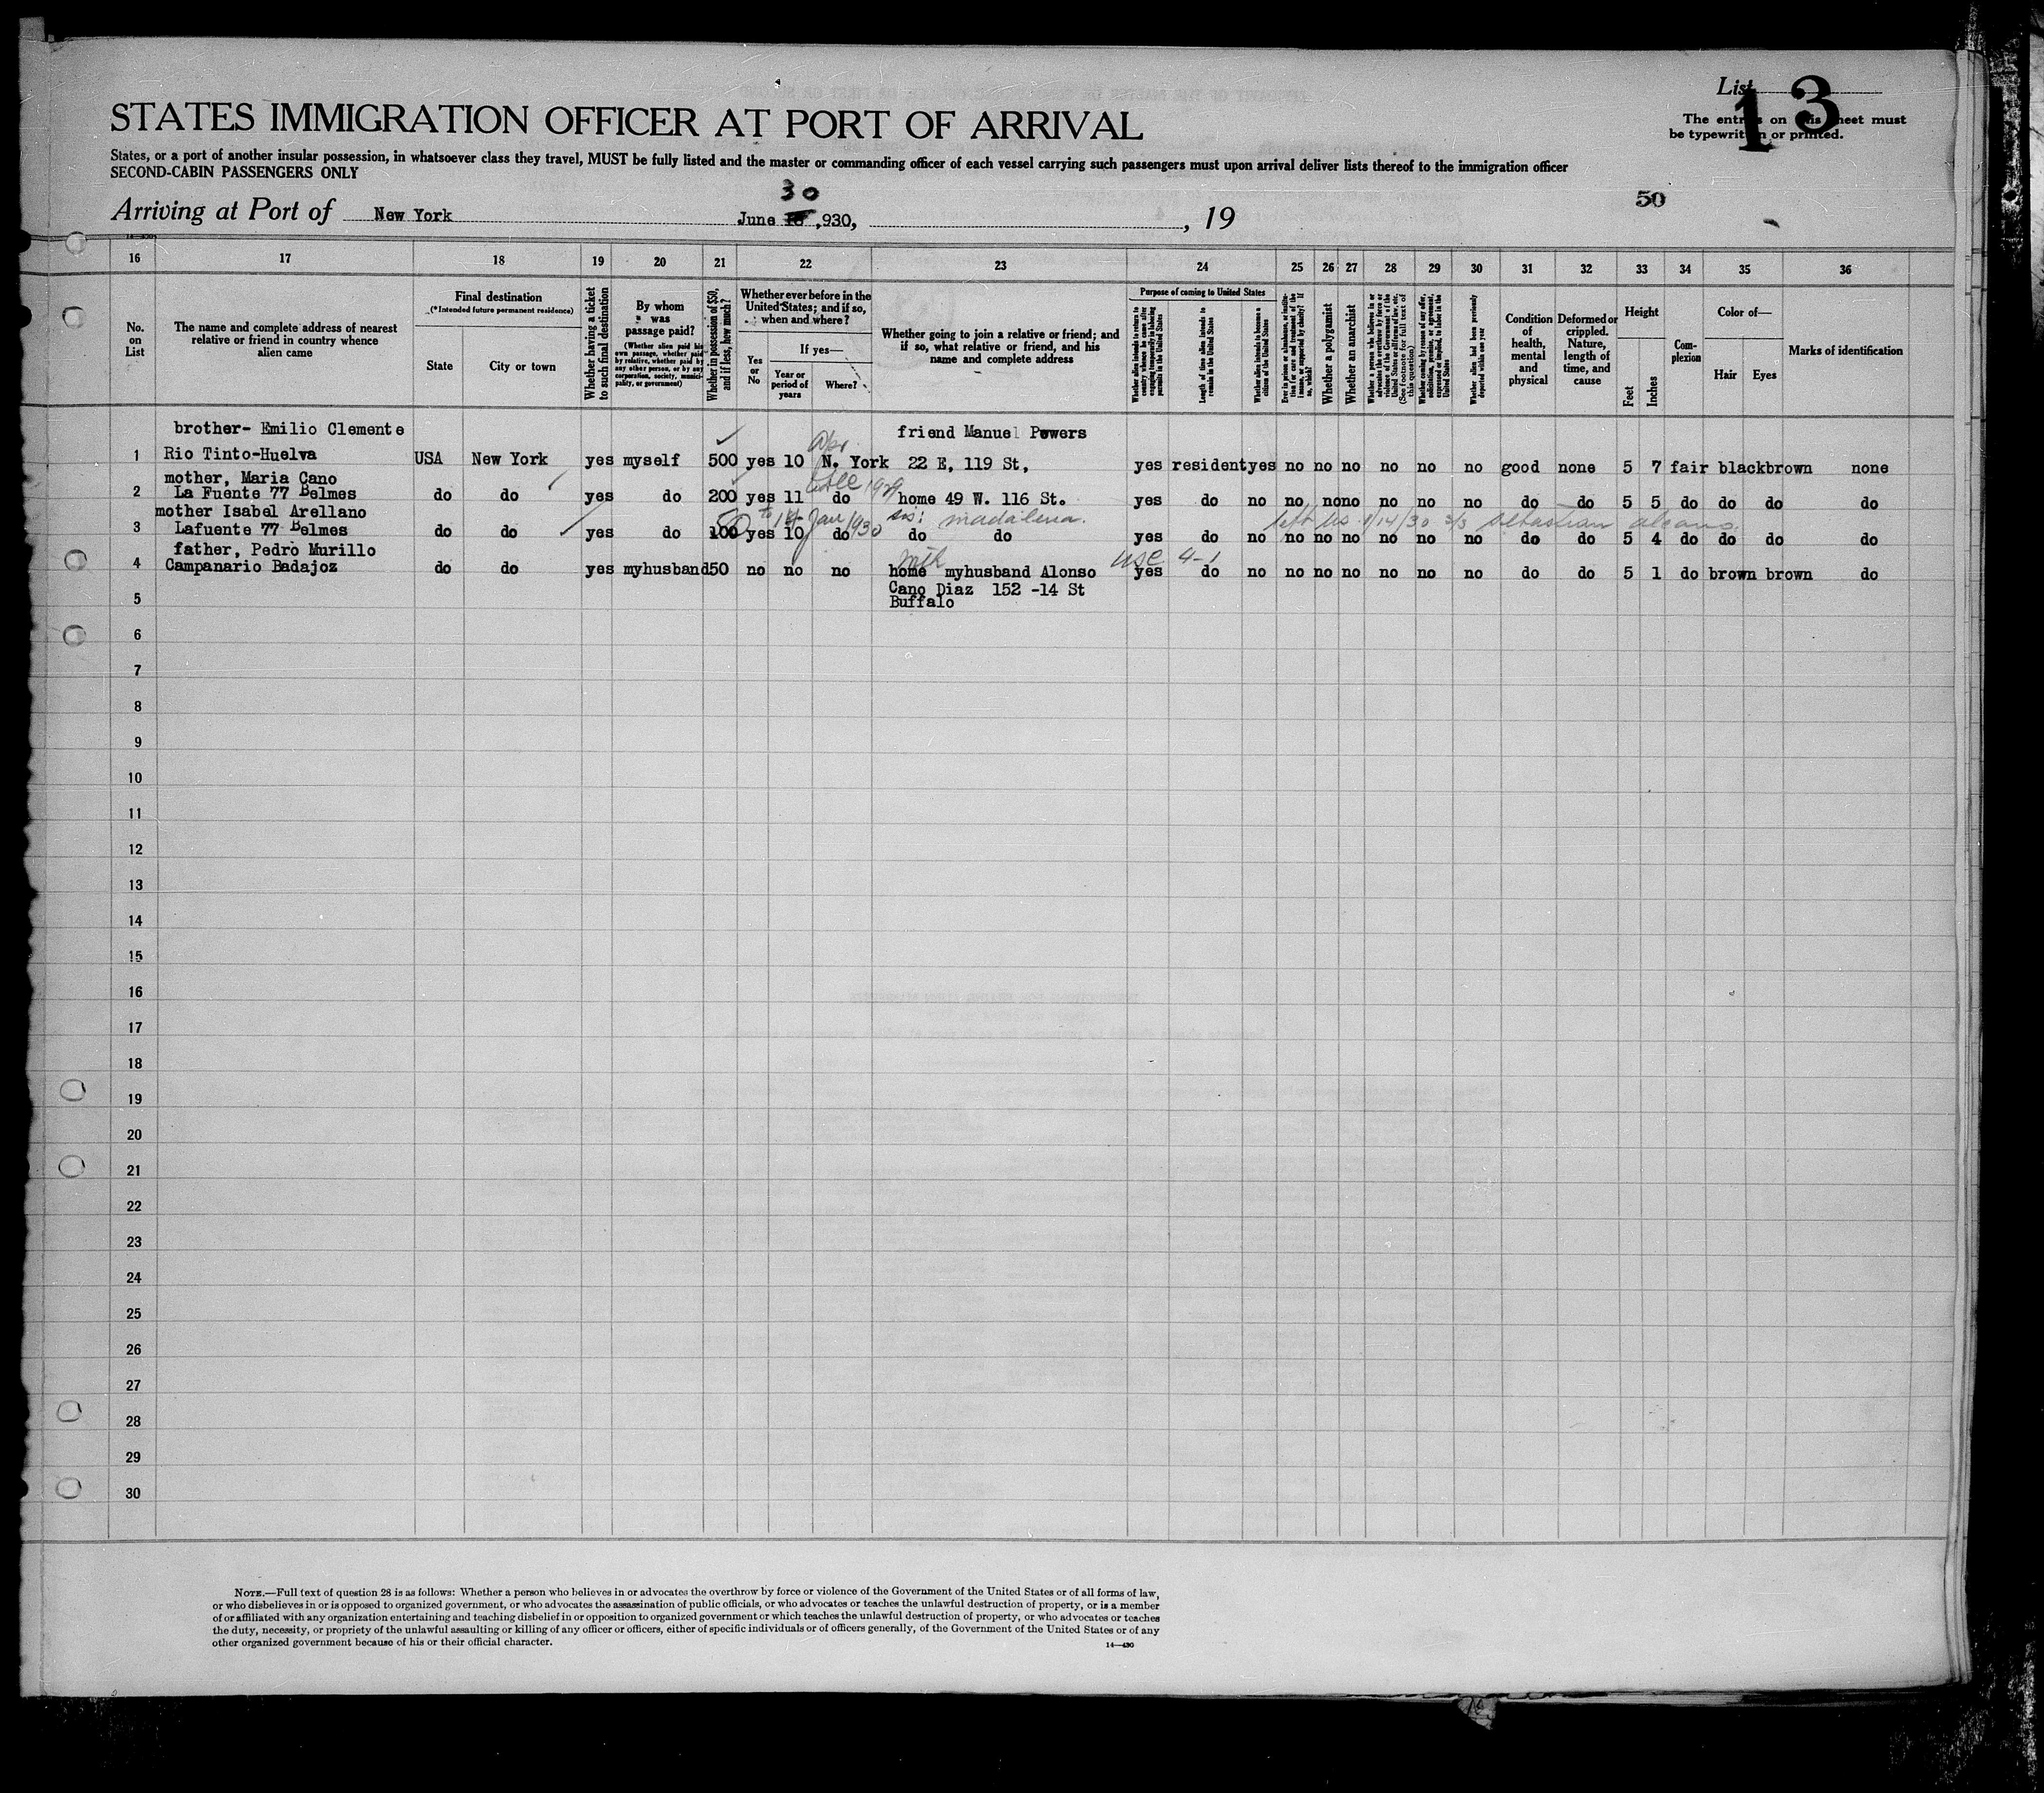 List 13
STATES IMMIGRATION OFFICER AT PORT OF ARRIVAL
The entries on this sheet must
be typewritten or printed.
States, or a port of another insular possession, in whatsoever class they travel, MUST be fully listed and the master or commanding officer of each vessel carrying such passengers must upon arrival deliver lists thereof to the immigration officer
SECOND-CABIN PASSENGERS ONLY
30
50
Arriving at Port of New York June 18 ,930, , 19
16 17 18 19 20 21 22 23 24 25 26 27 28 29 30 31 32 33 34 35 36
No. on List
The name and complete address of nearest relative or friend in country whence alien came
Final destination
(*Intended future permanent residence)
State
City or town
Whether having a ticket to such final destination
By whom was passage paid?
(Whether alien paid his own passage, whether paid by relative, whether paid by any other person, or by any corporation, society, municipality, or government)
Whether in possession of $50, and if less, how much?
Whether ever before in the United States; and if so, when and where?
Yes or No
If yes—
Year or period of years
Where?
Whether going to join a relative or friend; and if so, what relative or friend, and his name and complete address
Purpose of coming to United States
Whether alien intends to return to country whence he came after engaging temporarily in laboring pursuits in the United States
Length of time alien intends to remain in the United States
Whether alien intends to become a citizen of the United States
Ever in prison or almshouse, or institution for care and treatment of the insane, or supported by charity? If so, which?
Whether a polygamist
Whether an anarchist
Whether a person who believes in or advocates the overthrow by force or violence of the Government of the United States or all forms of law, etc. (See footnote for full text of this question)
Whether coming by reason of any offer, solicitation, promise, or agreement, expressed or implied, to labor in the United States
Whether alien had been previously deported within one year
Condition of health, mental and physical
Deformed or crippled. Nature, length of time, and cause
Height
Feet
Inches
Complexion
Color of—
Hair
Eyes
Marks of identification
brother- Emilio Clemente friend Manuel Powers
Apr.
1 Rio Tinto-Huelva USA New York yes myself 500 yes 10 N. York 22 E, 119 St, yes resident yes no no no no no no good none 5 7 fair black brown none
mother, Maria Cano
1929
2 La Fuente 77 Belmes do do yes do 200 yes 11 do home 49 W. 116 St. yes do no no no no no no no do do 5 5 do do do do
mother Isabel Arellano
50 to 14 Jan 1930 sis: madalena. left US 1/14/30 S/S Sebastian elcano.
3 Lafuente 77 Belmes do do yes do 100 yes 10 do do do yes do no no no no no no no do do 5 4 do do do do
father, Pedro Murillo
4-1
4 Campanario Badajoz do do yes myhusband 50 no no no home myhusband Alonso yes do no no no no no no no do do 5 1 do brown brown do
Cano Diaz 152 -14 St
5 Buffalo
6
7
8
9
10
11
12
13
14
15
16
17
18
19
20
21
22
23
24
25
26
27
28
29
30
NOTE.—Full text of question 28 is as follows: Whether a person who believes in or advocates the overthrow by force or violence of the Government of the United States or of all forms of law,
or who disbelieves in or is opposed to organized government, or who advocates the assassination of public officials, or who advocates or teaches the unlawful destruction of property, or is a member
of or affiliated with any organization entertaining and teaching disbelief in or opposition to organized government or which teaches the unlawful destruction of property, or who advocates or teaches
the duty, necessity, or propriety of the unlawful assaulting or killing of any officer or officers, either of specific individuals or of officers generally, of the Government of the United States or of any
other organized government because of his or their official character.
14—430